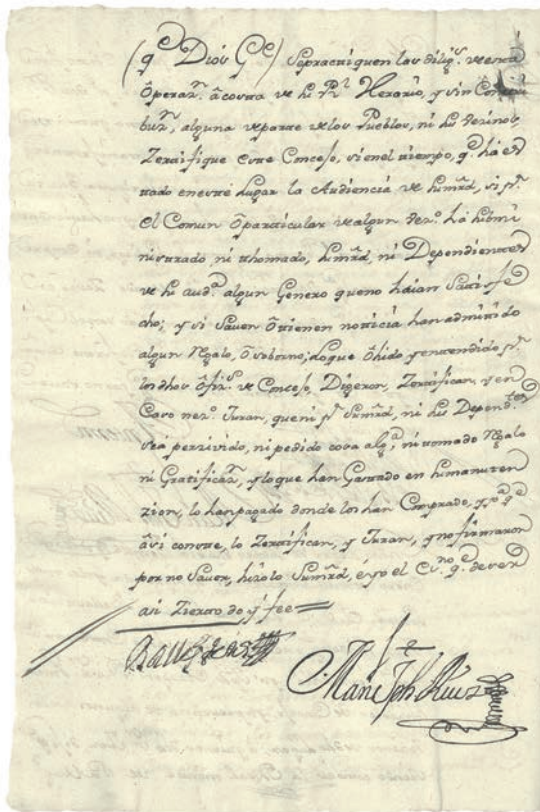 (q.e Dios G.e) Sepractiquen las dilig.s de esta
Operaz.n â costa de su R.l Herario, y sin Contri
buz.n alguna departe delos Pueblos, ni sus vezinos,
Zertifique este Concejo, si enel tiempo, q.e há es
tado eneste lugar la Audiencia de sumrd, si p.r
el Comun ô particular de algun vez.o há submi
nistrado ni thomado, sumrd, ni Dependientes
de su aud.a algun Genero queno haian Satisfe
cho; y si Saven ô tienen noticia han admitido
algun Regalo, ô soborno; loque ôhido yentendido p.r
los dhos ôfiz.s de Concejo, Digeron, Zertifican, y en
Caso nez.o Juran, que ni p.r Sumrd, ni sus Depend.tes
se á perzivido, ni pedido cosa alg.a ni tomado Regalo
ni Gratificaz.n y loque han Gastado en sumanuten
zion, lo hanpagado donde los han Comprado, y p.r q.e
âsi conste, lo Zertifican, y Juran, y nofirmaron
por no Saver, hizolo Sumrd, é yo el Es.no q.e de ser
asi Zierto doy fee =
Man.l Jph. Ruiz